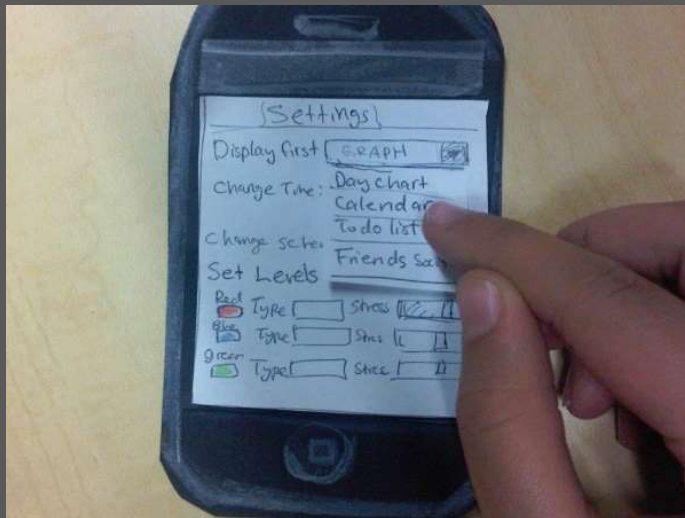 Settings
Display first GRAPH
Change Time: Day chart
Calendar
To do list
Change
Friends
Set Levels
Red Type Stress
Blue Type
green Type